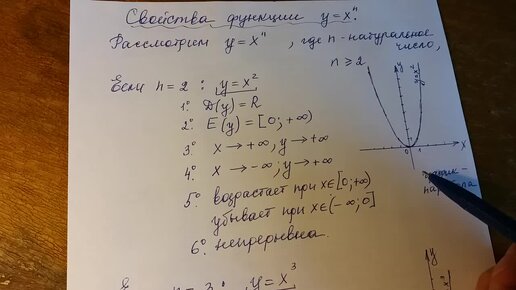 Свойства функции y=xⁿ.
Рассмотрим y=xⁿ, где n-натуральное
число,
n ≥ 2
Если n=2 : y=x²
1° D(y)=R
2° E(y)=[0;+∞)
3° x→+∞, y→+∞
4° x→-∞; y→+∞
5° возрастает при x∈[0;+∞)
убывает при x∈(-∞;0]
6° непрерывна.
y
y=x²
x
1
график-
парабола
n=3: y=x³
y